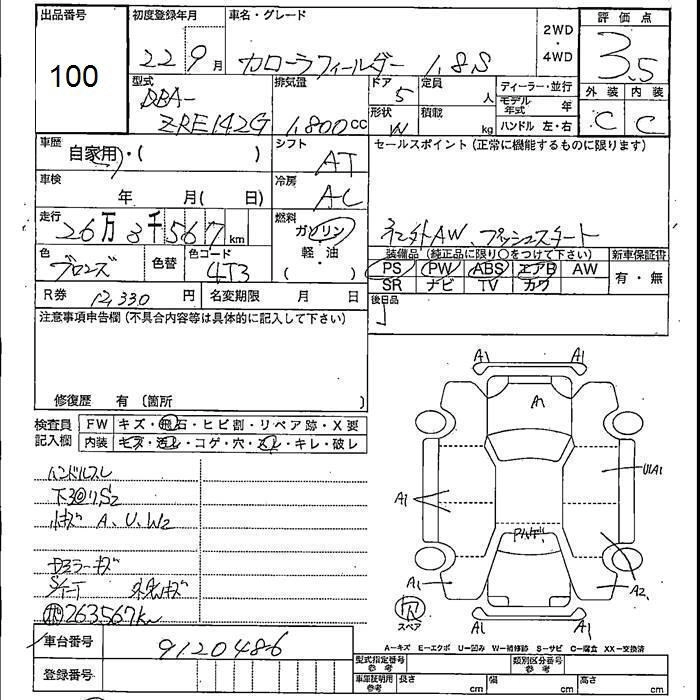 出品番号 初度登録年月 車名・グレード 2WD・4WD 評価点
100 22 9月 カローラフィールダー 1.8S 3.5
外装 内装
C C
型式 排気量 ドア 定員 ディーラー・並行
DBA- 5 人 モデル年式 年
ZRE142G 1,800cc 形状 W 積載 kg ハンドル 左・右
車歴 自家用・( ) シフト AT セールスポイント (正常に機能するものに限ります)
車検 年 月( 日) 冷房 AC
走行 26万3千567km 燃料 ガソリン・軽・油( )
社外AW、プッシュスタート
色 ブロンズ 色替 色コード 4T3
装備品 (純正品に限り〇をつけて下さい) 新車保証書
PS PW ABS エアB AW 有・無
SR ナビ TV カワ
R券 12,330円 名変期限 月 日 後日品
注意事項申告欄 (不具合内容等は具体的に記入して下さい)
修復歴 有 (箇所 )
検査員記入欄 FW キズ・飛石・ヒビ割・リペア跡・X要
内装 キズ・汚レ・コゲ・穴・スレ・キレ・破レ
ハンドルスレ
下回りS2
小キズ A、U、W2
Dミラーキズ
263,567km
A1 A1
A
U1A1
A1
A1 A2
スペア A1 A1
車台番号 9120486
A－キズ E－エクボ U－凹み W－補修跡 S－サビ C－腐食 XX－交換済
登録番号
型式指定番号 参考 類別区分番号 参考
車庫証明用 参考 長さ cm 幅 cm 高さ cm